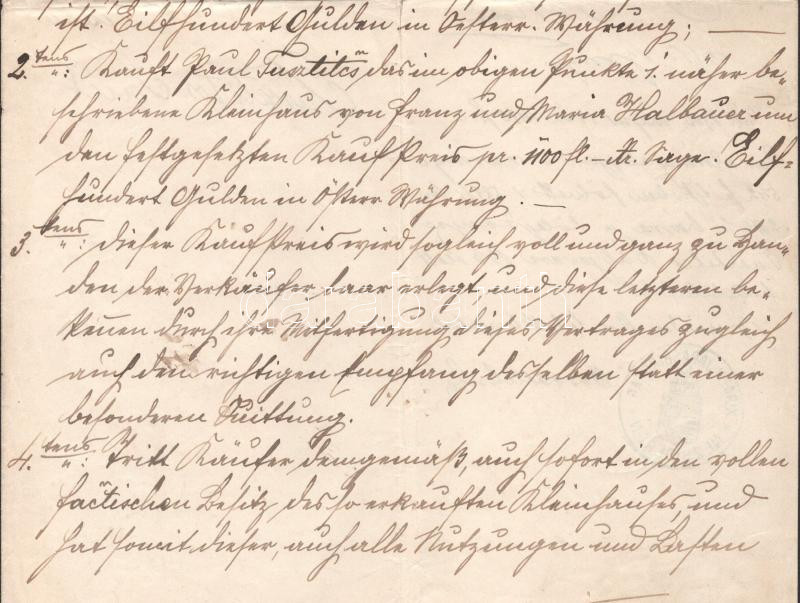 ist. Eilfhundert Gulden in Oesterr. Währung; —
2. tens Kauft Paul Tusztits das im obigen Punkte 1. näher be-
schriebene Kleinhaus von Franz und Maria Halbauer um
den festgesetzten Kauf Preis pr. 1100 fl. – Sage: Eilf-
hundert Gulden in Österr Währung. —
3. tens dieser KaufPreis wird sogleich voll und ganz zu Han-
den der Verkäufer baar erlegt, und diese letzteren be-
kennen durch ihre Mitfertigung dieses Vertrages zugleich
auch den richtigen Empfang desselben statt einer
besonderen Quittung.
4. tens Tritt Käufer demgemäß, auch sofort in den vollen
factischen Besitz des so erkauften Kleinhauses, und
hat somit dieser, auch alle Nutzungen und Lasten
darabanth